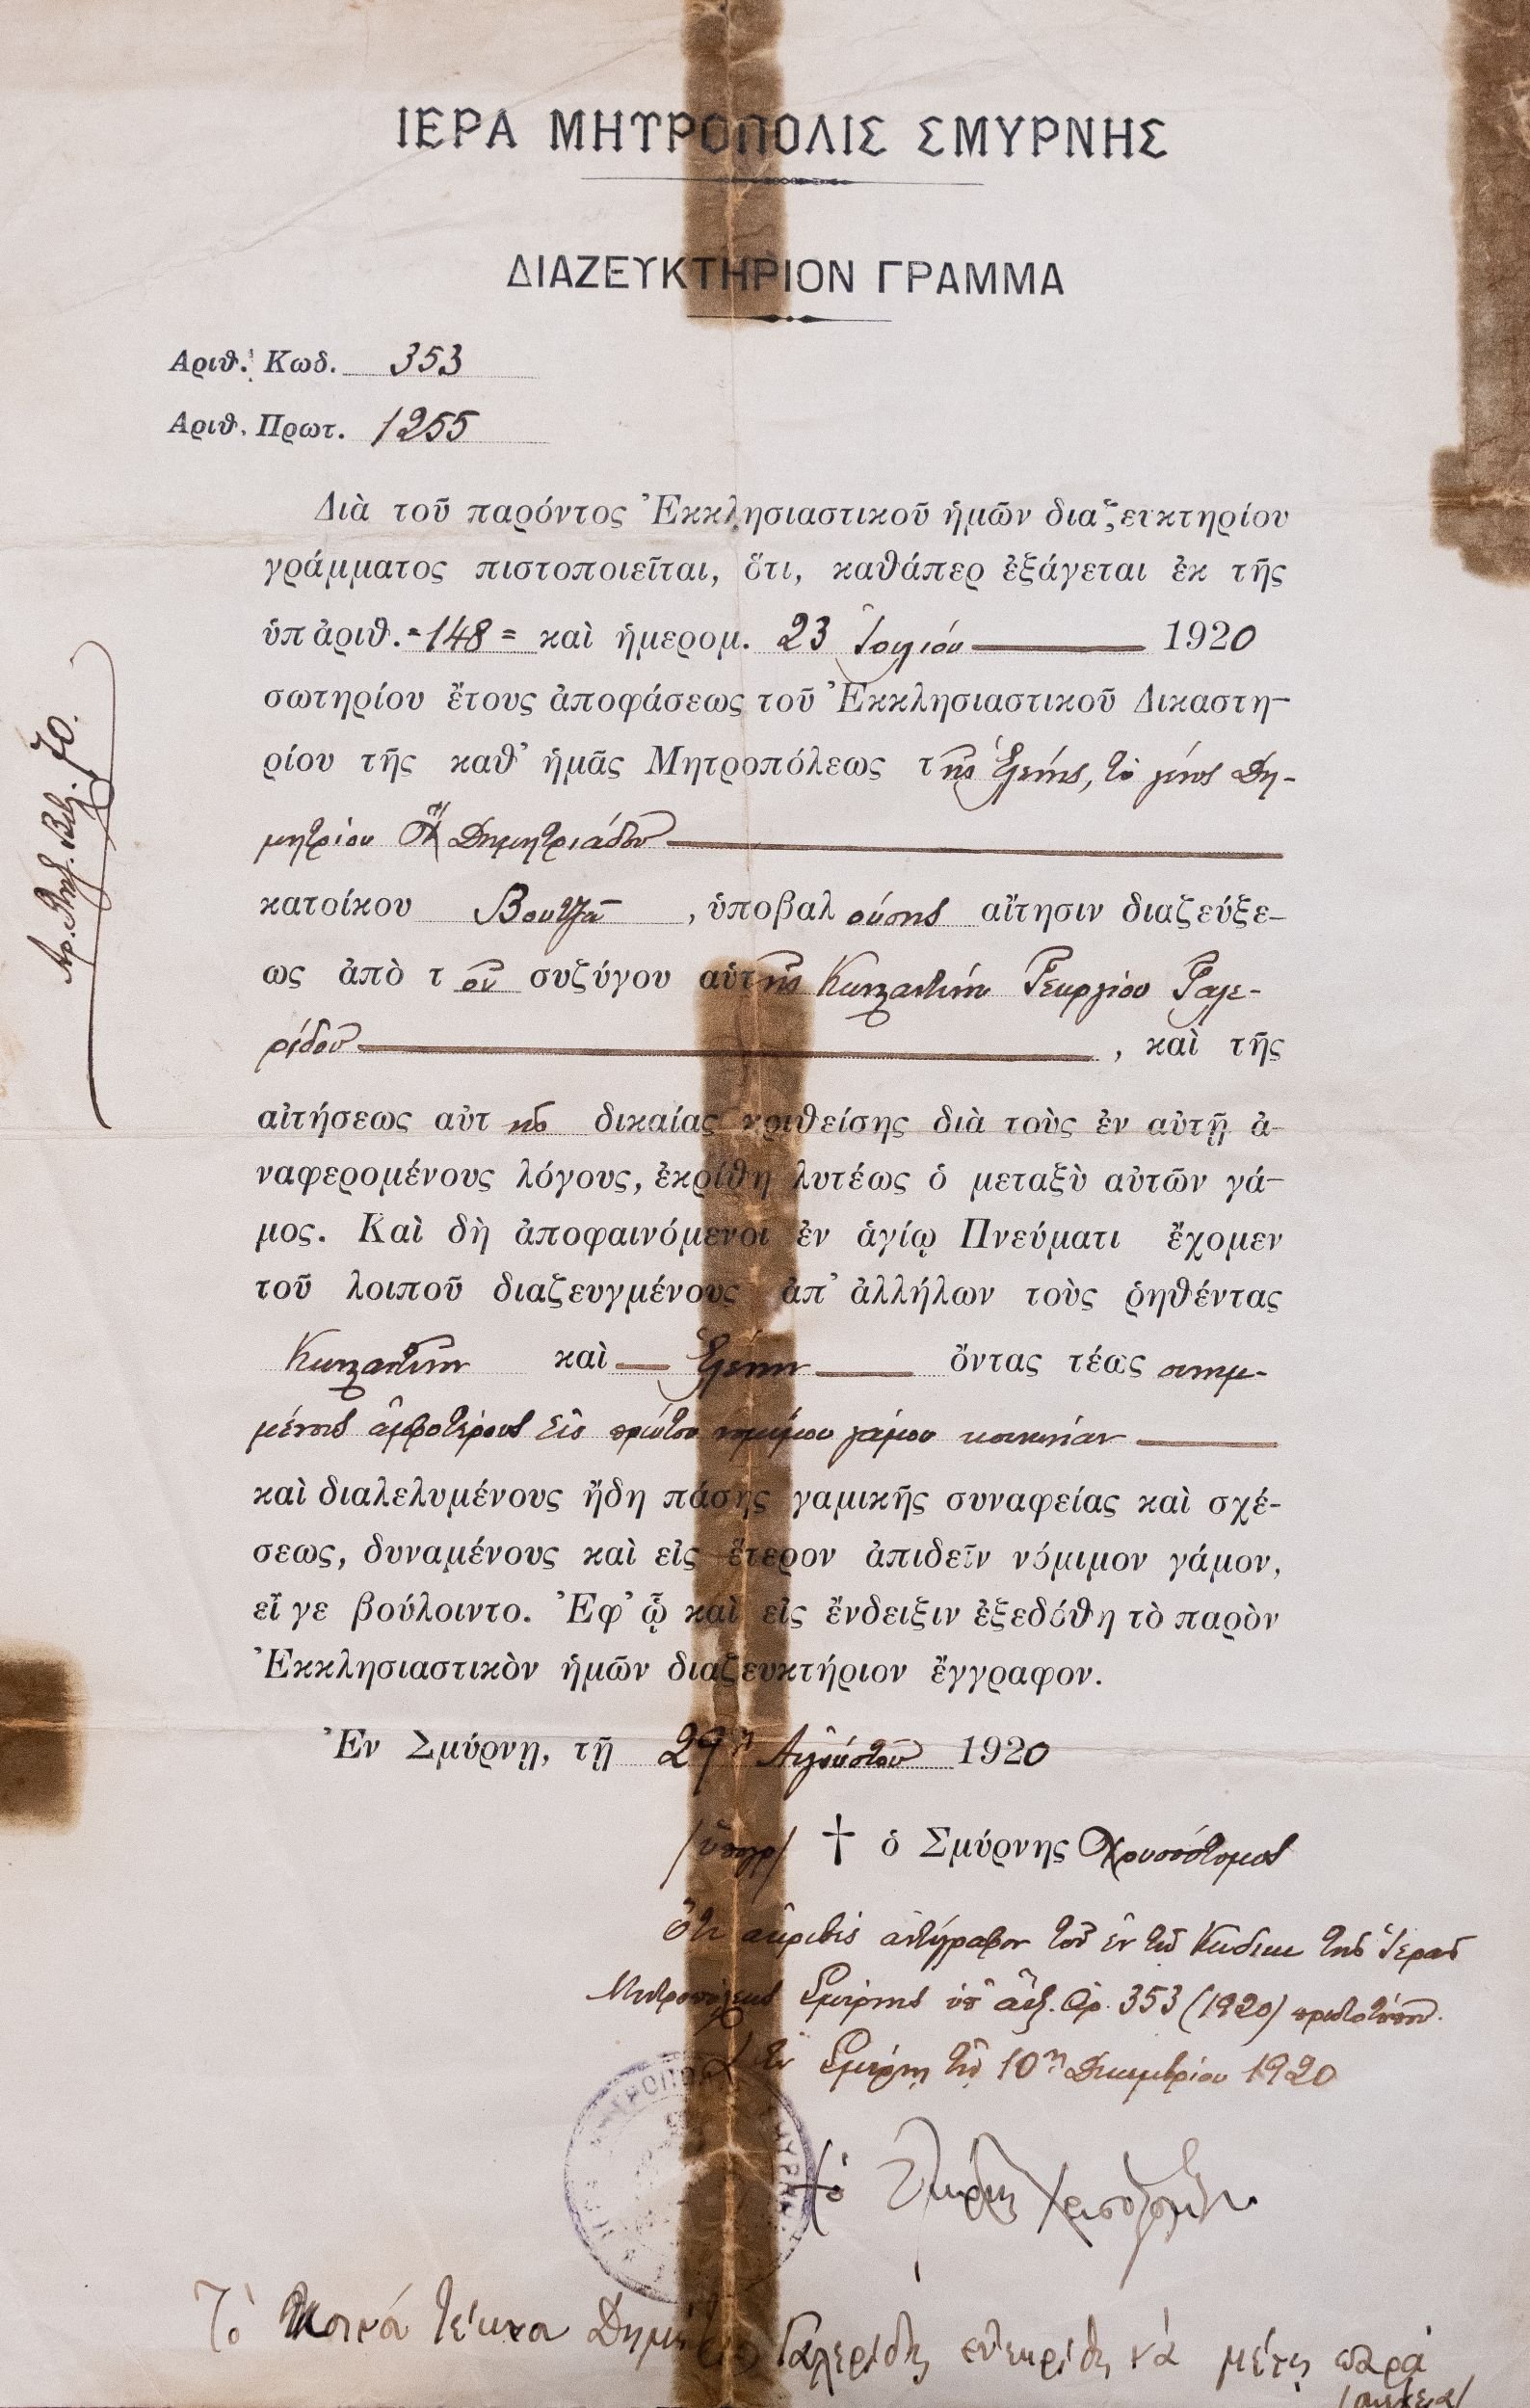 ΙΕΡΑ ΜΗΤΡΟΠΟΛΙΣ ΣΜΥΡΝΗΣ
ΔΙΑΖΕΥΚΤΗΡΙΟΝ ΓΡΑΜΜΑ
Ἀριθ. Κωδ. 353
Ἀριθ. Πρωτ. 1255
Διὰ τοῦ παρόντος Ἐκκλησιαστικοῦ ἡμῶν διαζευκτηρίου
γράμματος πιστοποιεῖται, ὅτι, καθάπερ ἐξάγεται ἐκ τῆς
ὑπ ἀριθ. =148= καὶ ἡμερομ. 23 Ἰουλίου 1920
σωτηρίου ἔτους ἀποφάσεως τοῦ Ἐκκλησιαστικοῦ Δικαστη-
ρίου τῆς καθ' ἡμᾶς Μητροπόλεως τῆς Ἑλένης, τὸ γένος Δη-
μητρίου Δημητριάδου
κατοίκου Βουτζᾶ, ὑποβαλούσης αἴτησιν διαζεύξε-
ως ἀπὸ τοῦ συζύγου αὐτῆς Κωνσταντίνου Γεωργίου Γαλε-
ρίδου, καὶ τῆς
αἰτήσεως αὐτῆς δικαίας κριθείσης διὰ τοὺς ἐν αὐτῇ ἀ-
ναφερομένους λόγους, ἐκρίθη λυτέως ὁ μεταξὺ αὐτῶν γά-
μος. Καὶ δὴ ἀποφαινόμενοι ἐν ἁγίῳ Πνεύματι ἔχομεν
τοῦ λοιποῦ διαζευγμένους ἀπ' ἀλλήλων τοὺς ῥηθέντας
Κωνσταντῖνον καὶ Ἑλένην ὄντας τέως συνημ-
μένους ἀμφοτέρους εἰς πρώτου νομίμου γάμου κοινωνίαν
καὶ διαλελυμένους ἤδη πάσης γαμικῆς συναφείας καὶ σχέ-
σεως, δυναμένους καὶ εἰς ἕτερον ἀπιδεῖν νόμιμον γάμον,
εἴ γε βούλοιντο. Ἐφ' ᾧ καὶ εἰς ἔνδειξιν ἐξεδόθη τὸ παρὸν
Ἐκκλησιαστικὸν ἡμῶν διαζευκτήριον ἔγγραφον.
Ἐν Σμύρνῃ, τῇ 29ῃ Αὐγούστου 1920
/ὑπογρ/ † ὁ Σμύρνης Χρυσόστομος
Ὅτι ἀκριβὲς ἀντίγραφον τοῦ ἐν τῷ Κώδικι τῆς Ἱερᾶς
Μητροπόλεως Σμύρνης ὑπ' αὔξ. ἀρ. 353 (1920) πρωτοτύπου.
Ἐν Σμύρνῃ τῇ 10ῃ Δεκεμβρίου 1920
† ὁ Σμύρνης Χρυσόστομος
Τὸ τέκνα Γαλερίδης νὰ μένῃ παρὰ